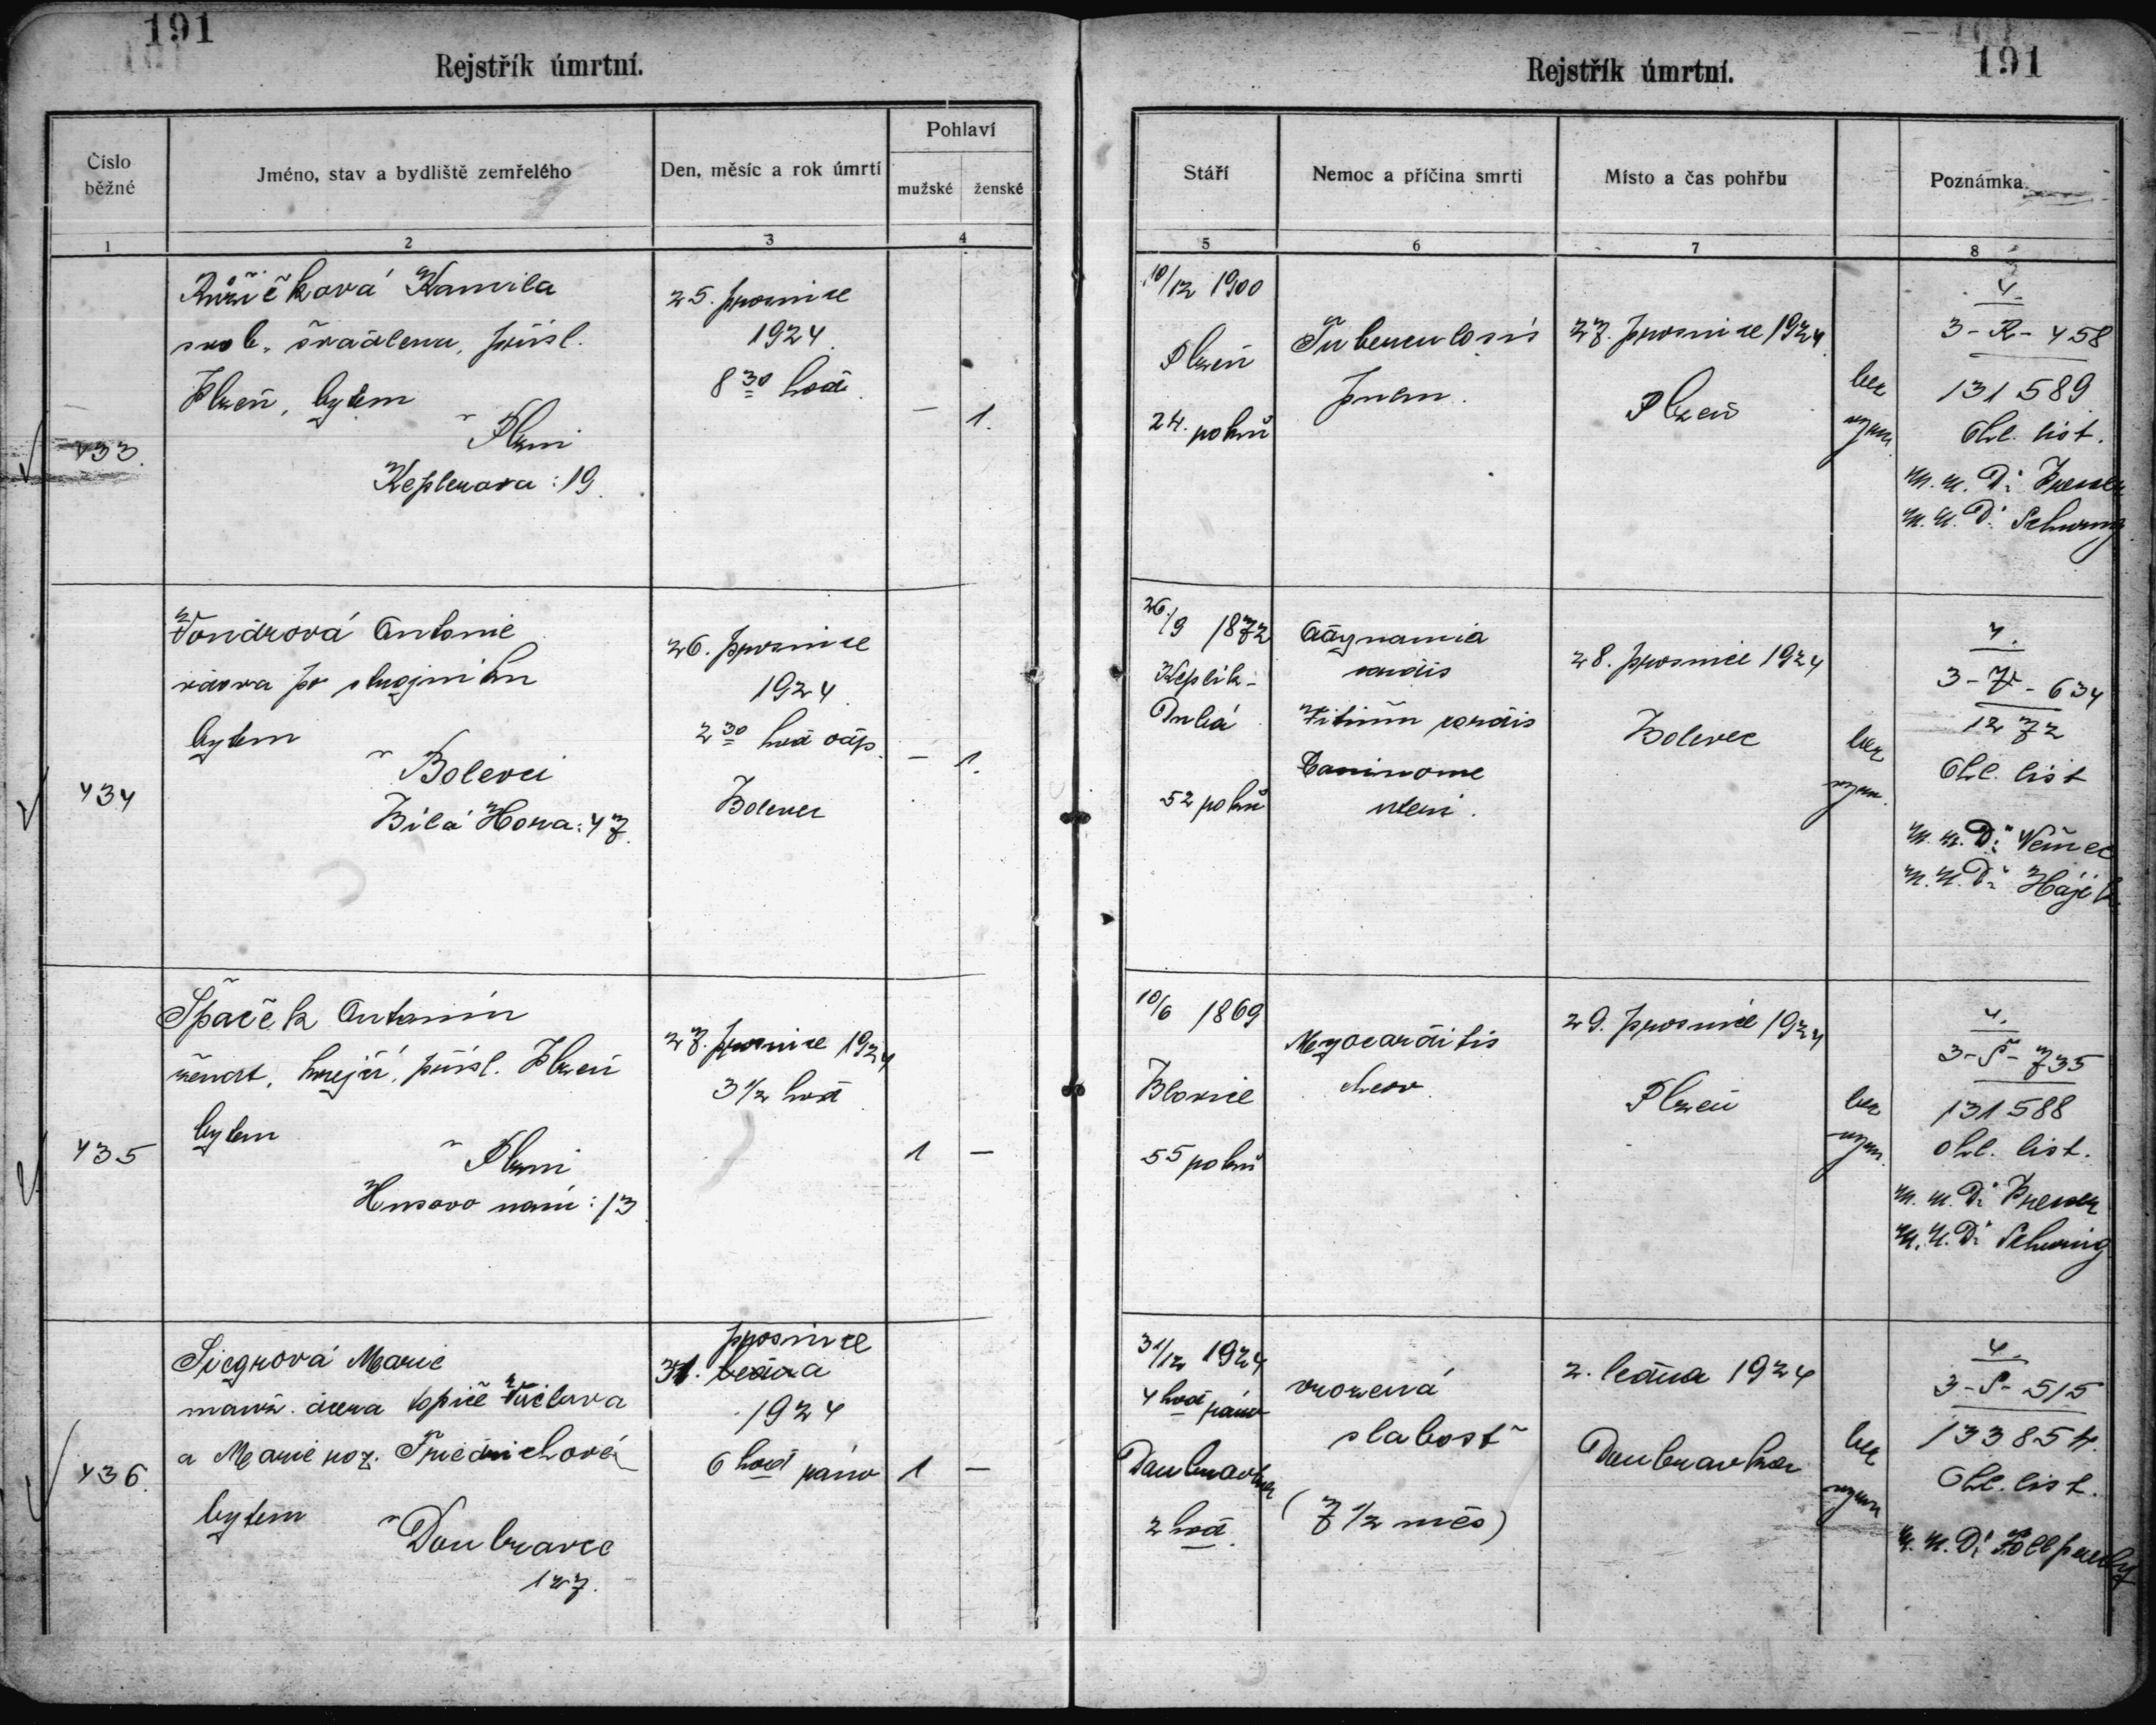 191
Rejstřík úmrtní.
Číslo běžné
Jméno, stav a bydliště zemřelého
Den, měsíc a rok úmrtí
Pohlaví
mužské
ženské
1
2
3
4
433.
Růžičková Kamila
svob. švadlena, přísl.
Plzeň, bytem
v Plzni
Keplerova : 19.
25. prosince
1924.
8 30 hod.
—
1.
434
Vondrová Antonie
vdova po strojníku
bytem
v Bolevci
Bílá Hora : 47.
26. prosince
1924
2 30 hod odp.
Bolevec
—
1.
435
Špaček Antonín
ženat, krejčí, přísl. Plzeň
bytem
v Plzni
Husovo nám : 13
27. prosince 1924
3 1/2 hod
1
—
436.
Siegrová Marie
manž. dcera topiče Václava
a Marie roz. Friedrichové
bytem
v Doubravce
127.
prosince
31. ledna
1924
6 hod ráno
1
—
Rejstřík úmrtní.
191
Stáří
Nemoc a příčina smrti
Místo a čas pohřbu
Poznámka.
5
6
7
8
10/12 1900
Plzeň
24. roků
Tuberculosis
27. prosince 1924
Plzeň
bez
4.
3 - R - 458
131589
Ohl. list.
M. U. Dr
M. U. Dr
26./9 1872
52 roků
Adynamia
cordis
Vitium cordis
Carcinoma
uteri.
28. prosince 1924
Bolevec
bez
4.
3 - V - 634
1272
Ohl. list
M. U. Dr Němec
M. U. Dr Hájek
10/6 1869
Blovice
55 roků
Myocarditis
chron.
29. prosince 1924
Plzeň
bez
4.
3 - Š - 735
131588
ohl. list.
M. U. Dr
M. U. Dr
31/12 1924
4 hod ráno
Doubravka
2 hod.
vrozená
slabost
(7 1/2 měs)
2. ledna 1924
Doubravka
bez
4.
3 - S - 515
133854.
Ohl. list.
M. U. Dr